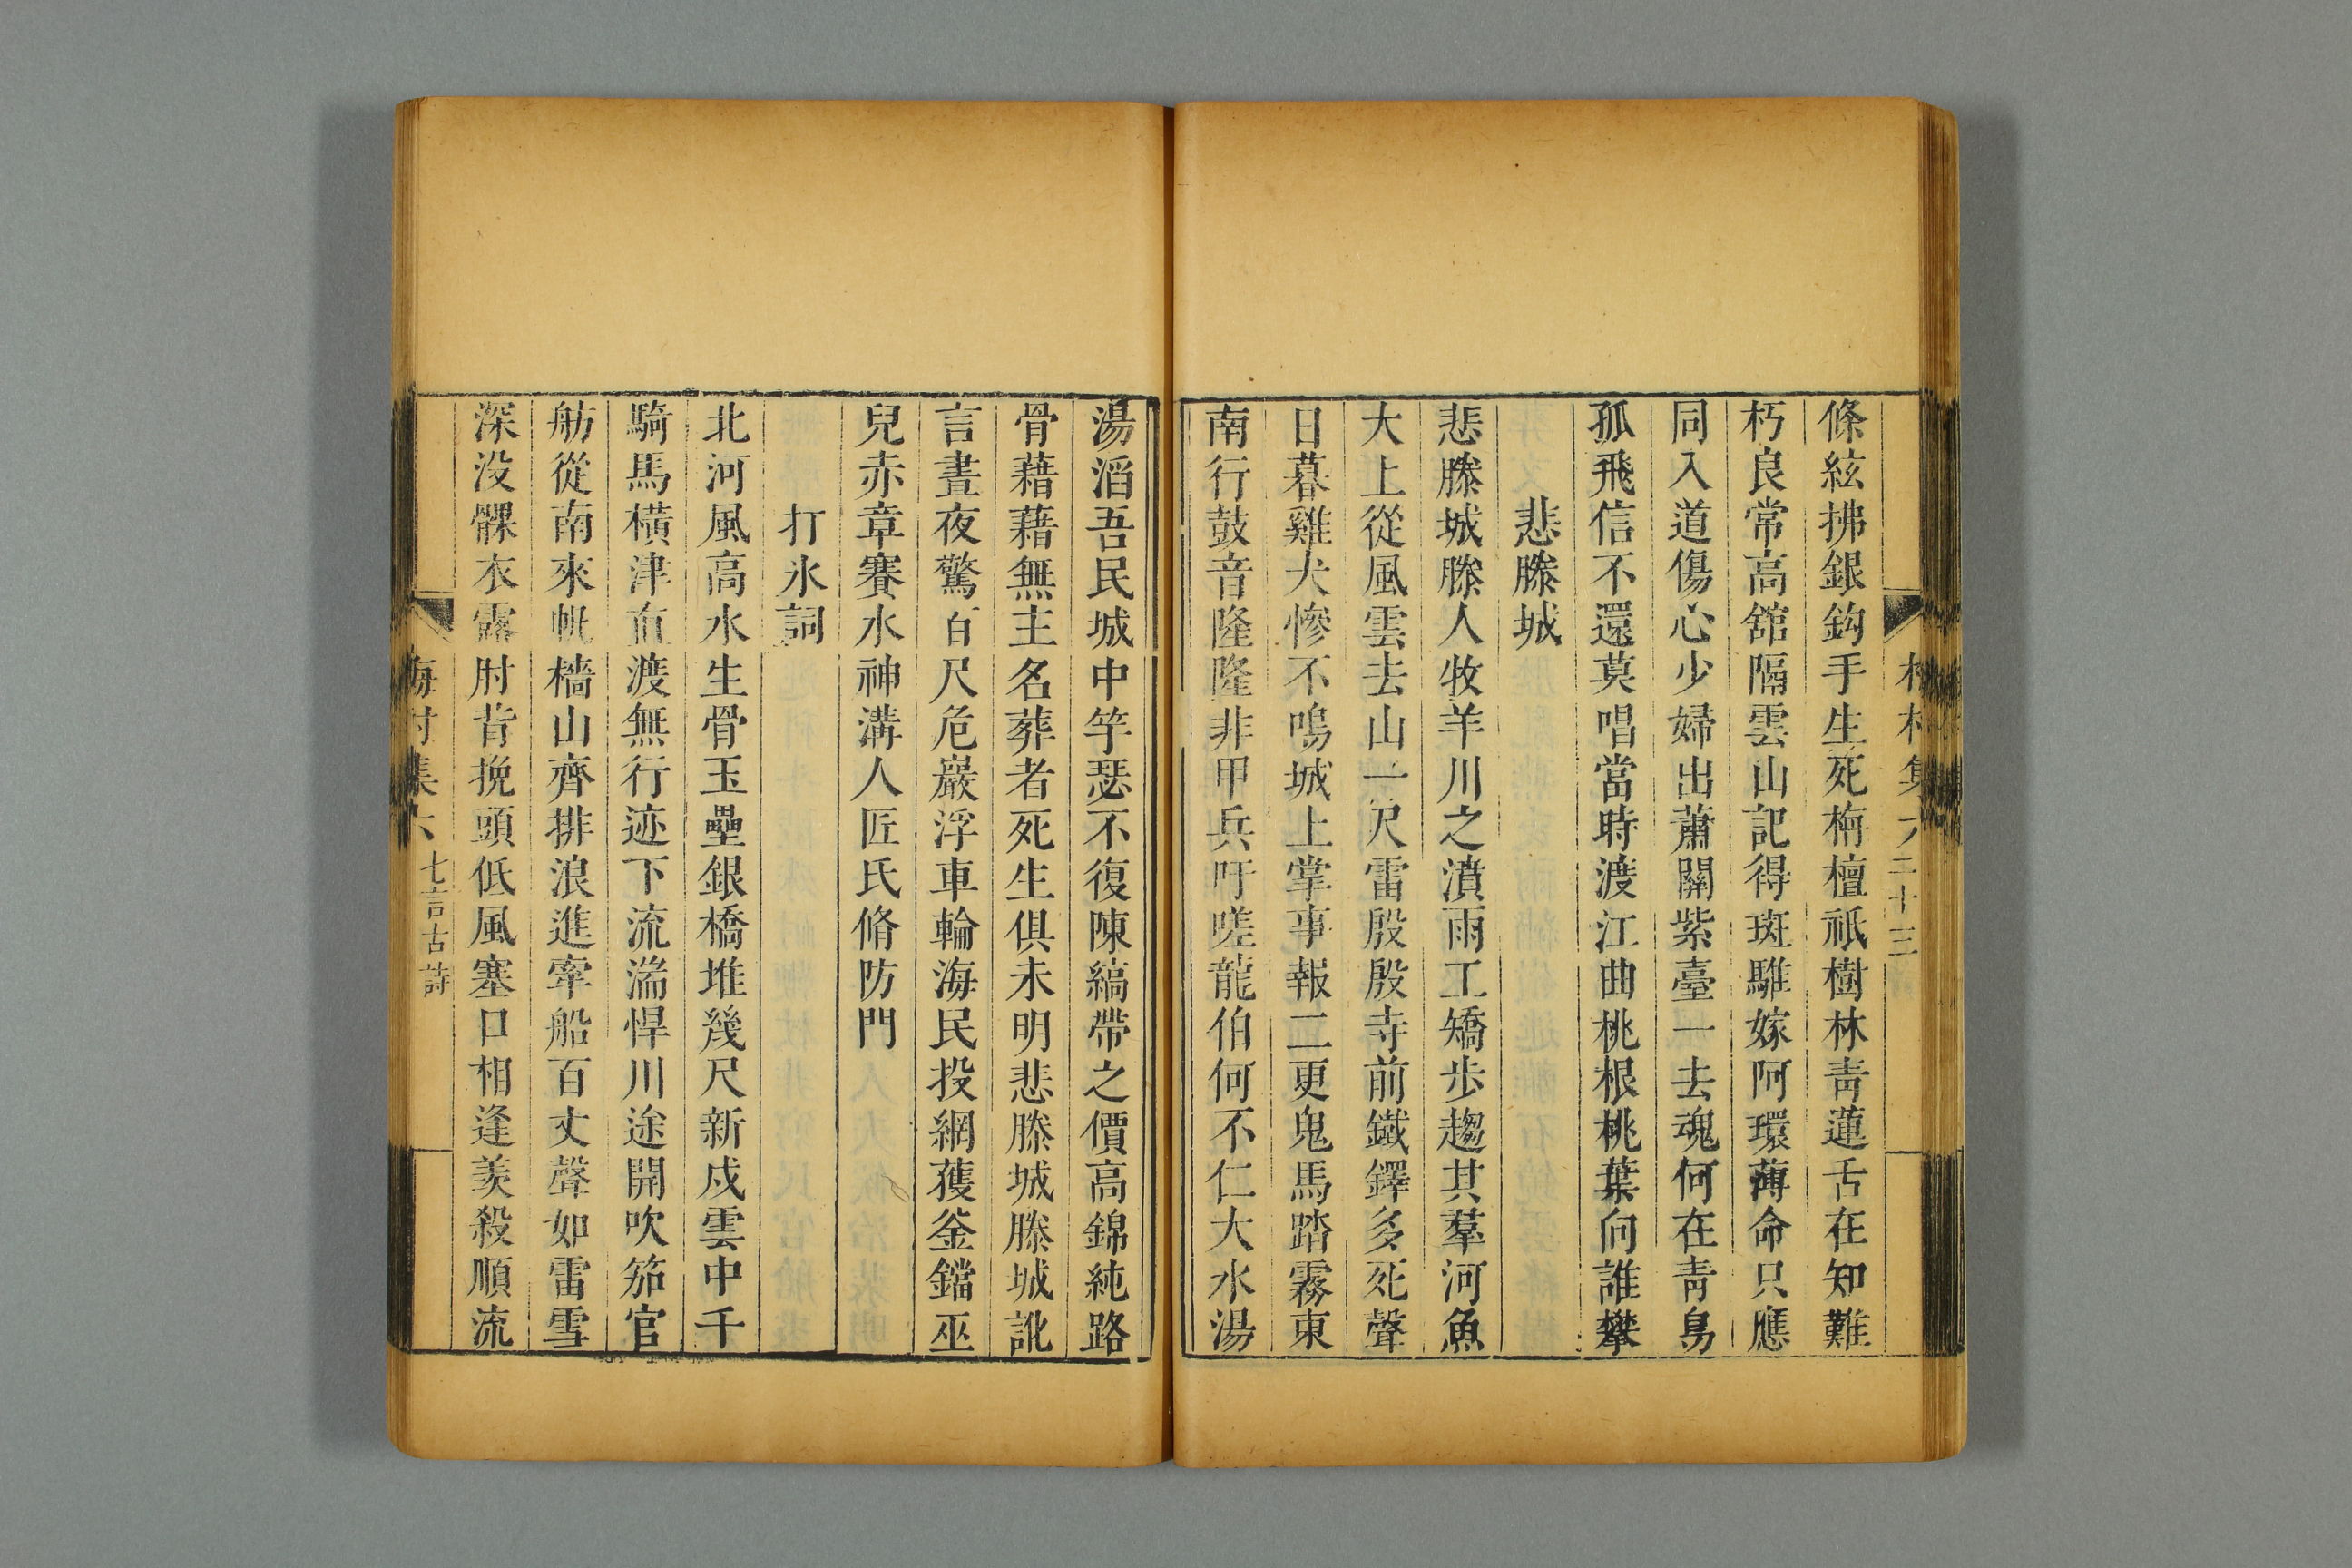 條絃拂銀鈎手生死栴檀祇樹林青蓮舌在知難
朽良常高舘隔雲山記得斑騅嫁阿環薄命只應
同入道傷心少婦出蕭關紫臺一去魂何在青鳥
孤飛信不還莫唱當時渡江曲桃根桃葉向誰攀
悲滕城
悲滕城滕人牧羊川之濆雨工矯步趨其羣河魚
大上從風雲去山一尺雷殷殷寺前鐵鐸多死聲
日暮雞犬慘不鳴城上掌事報二更鬼馬踏霧東
南行鼓音隆隆非甲兵吁嗟龍伯何不仁大水湯
湯滔吾民城中竽瑟不復陳縞帶之價高錦純路
骨藉藉無主名葬者死生俱未明悲滕城滕城訛
言晝夜驚百尺危巖浮車輪海民投網獲釜鐺巫
兒赤章賽水神溝人匠氏脩防門
打氷詞
北河風高水生骨玉壘銀橋堆幾尺新戍雲中千
騎馬橫津直渡無行迹下流湍悍川途開吹笳官
舫從南來帆檣山齊排浪進牽船百丈聲如雷雪
深没髁衣露肘背挽頭低風塞口相逢羨殺順流
海村集六 七言古詩